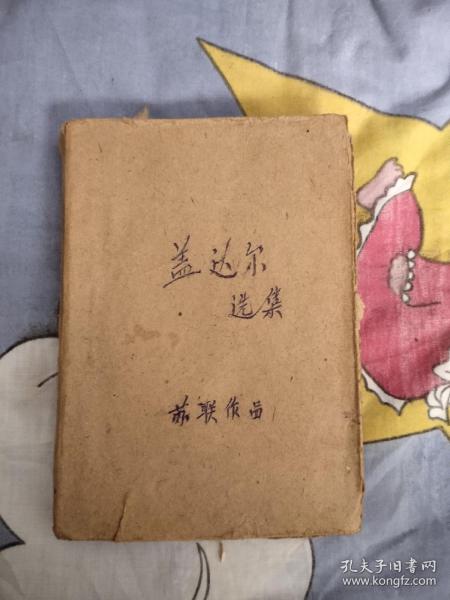 盖达尔
选集
苏联作品
孔夫子旧书网
www.kongfz.com